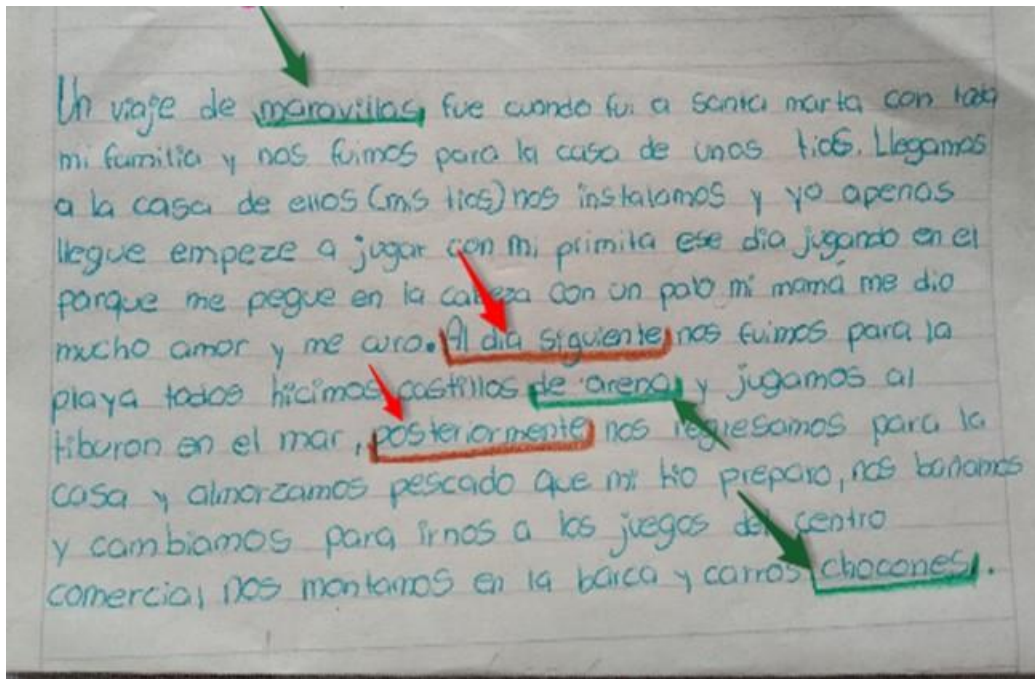 Un viaje de maravillas fue cuando fui a santa marta con toda
mi familia y nos fuimos para la casa de unos tios. Llegamos
a la casa de ellos (mis tios) nos instalamos y yo apenas
llegue empeze a jugar con mi primita ese dia jugando en el
parque me pegue en la cabeza con un palo mi mamá me dio
mucho amor y me curo. Al dia siguiente nos fuimos para la
playa todos hicimos castillos de arena y jugamos al
tiburon en el mar, posteriormente nos regresamos para la
casa y almorzamos pescado que mi tio preparo, nos bañamos
y cambiamos para irnos a los juegos del centro
comercial nos montamos en la barca y carros chocones.